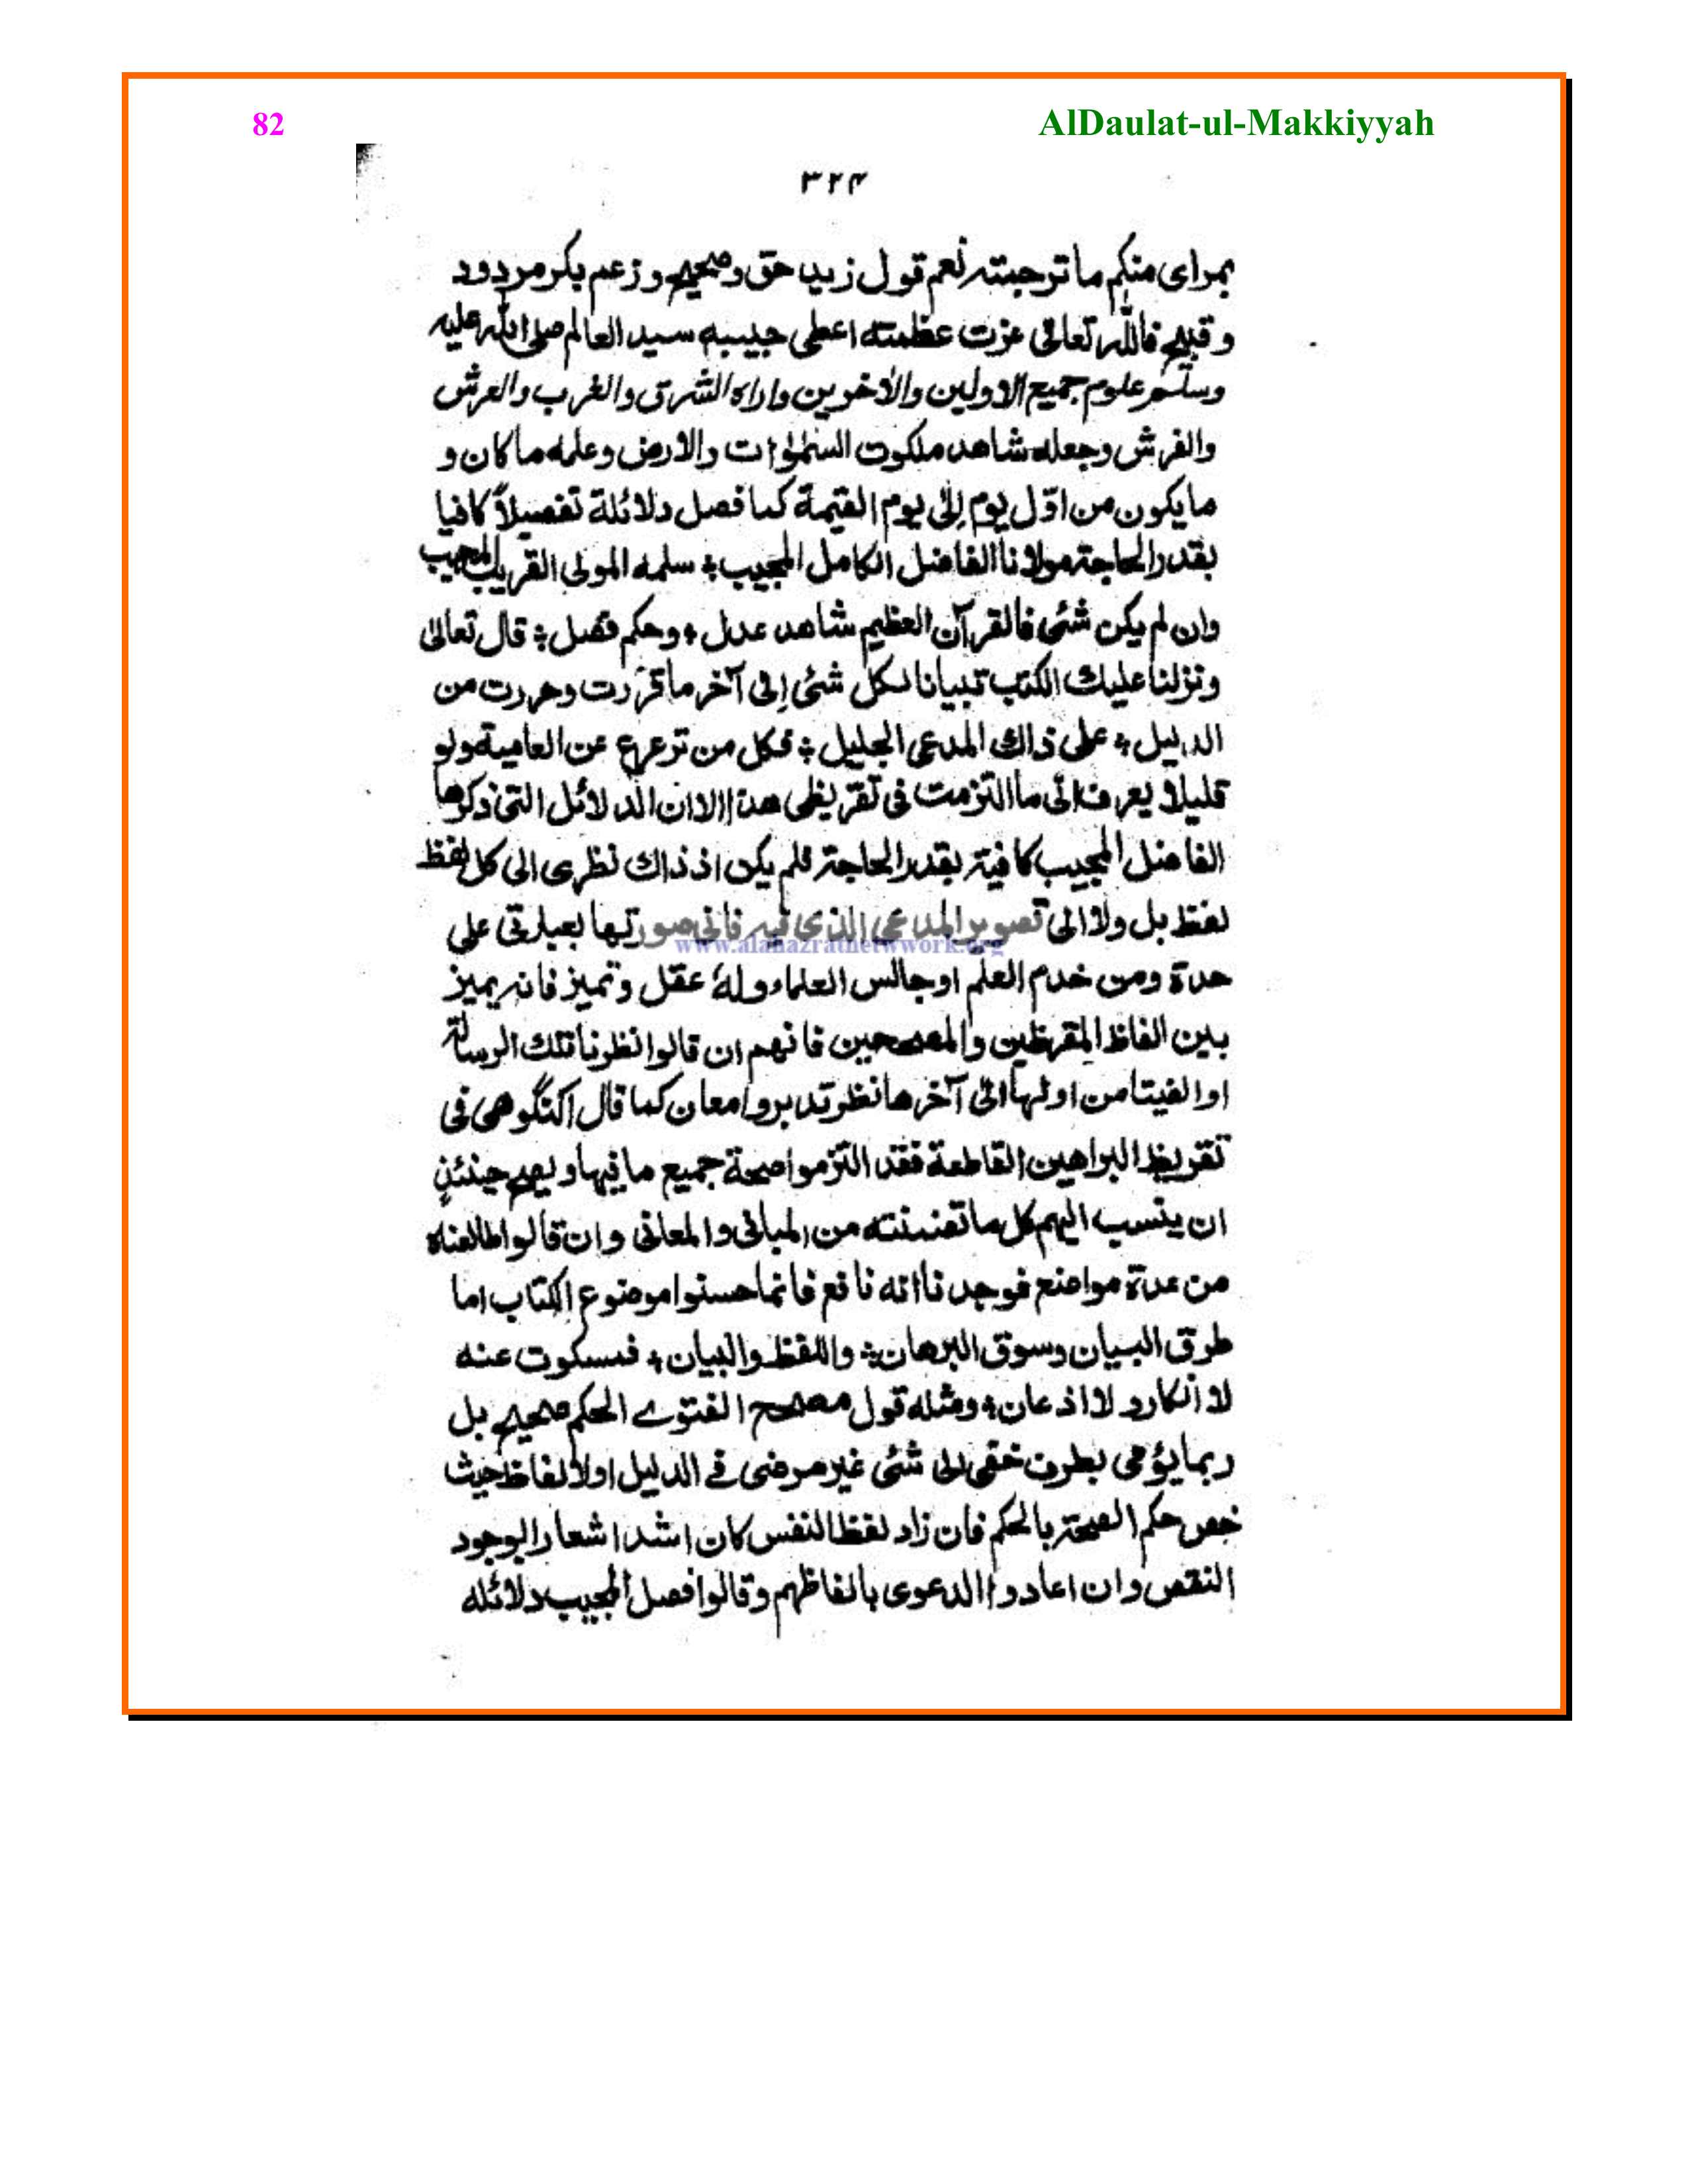 82
AlDaulat-ul-Makkiyyah
٣٢٤
بمراى منكم ما ترجمته نعم قول زيد حق وصحيح وزعم بكر مردود
وقبيح فالله تعالى عزت عظمته اعطى حبيبه سيد العالم صلى الله عليه
وسلم علوم جميع الاولين والاخرين واراه الشرق والغرب والعرش
والفرش وجعله شاهد ملكوت السمٰوٰت والارض وعلمه ما كان و
ما يكون من اوّل يوم إلى يوم القيٰمة كما فصل دلائلة تفصيلاً كافيا
بقدر الحاجة مولانا الفاضل الكامل المجيب ÷ سلمه المولى القريب المجيب
وان لم يكن شئى فالقرآن العظيم شاهد عدل ÷ وحكم فصل ÷ قال تعالىٰ
ونزلنا عليك الكتٰب تبيانا لكل شئى إلى آخر ما قرّرت وحررت من
الدليل ÷ على ذاك المدعى الجليل ÷ فكل من ترعرع عن العامية ولو
قليلا يعرف انى ما التزمت فى تقريظى هذا الا ان الدلائل التى ذكرها
الفاضل المجيب كافية بقدر الحاجة فلم يكن اذ ذاك نظرى الى كل لفظ
لفظ بل ولا الى تصوير المدعى الذى فيه فانى صورتها بعبارتى على
www.alahazratnetwork.org
حدة ومن خدم العلم او جالس العلماء ولهٗ عقل وتميز فانه يميز
بين الفاظ المقرظين والمصححين فانهم ان قالوا نظرنا تلك الرسالة
او الفيتا من اولها الىٰ آخرها نظر تدبر وامعان كما قال الكنگوهى فى
تقريظ البراهين القاطعة فقد التزموا صحة جميع ما فيها ويصح حينئذٍ
ان ينسب اليهم كل ما تضمنته من المبانى والمعانى وان قالوا طالعناه
من عدة مواضع فوجدناانه نافع فانما حسنوا موضوع الكتاب اما
طرق البيان وسوق البرهان ÷ واللفظ والبيان ÷ فسكوت عنه
لا انكار و لا اذعان ÷ ومثله قول مصحح الفتوے الحكم صحيح بل
ربما يؤمى بطرف خفى الى شئى غير مرضى فے الدليل اولالفاظ حيث
خص حكم الصحة بالحكم فان زاد لفظ النفس كان اشد اشعارا بوجود
النقص وان اعادوا الدعوى بالفاظهم وقالوا فصل المجيب دلائله